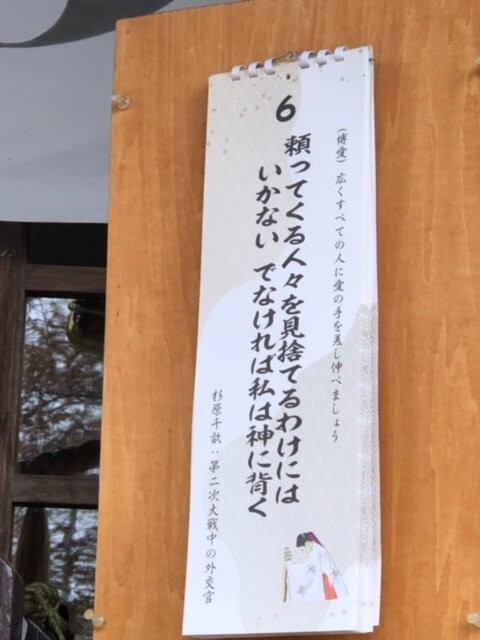 6
（博愛）広くすべての人に愛の手を差し伸べましょう
頼ってくる人々を見捨てるわけには
いかない でなければ私は神に背く
杉原千畝：第二次大戦中の外交官